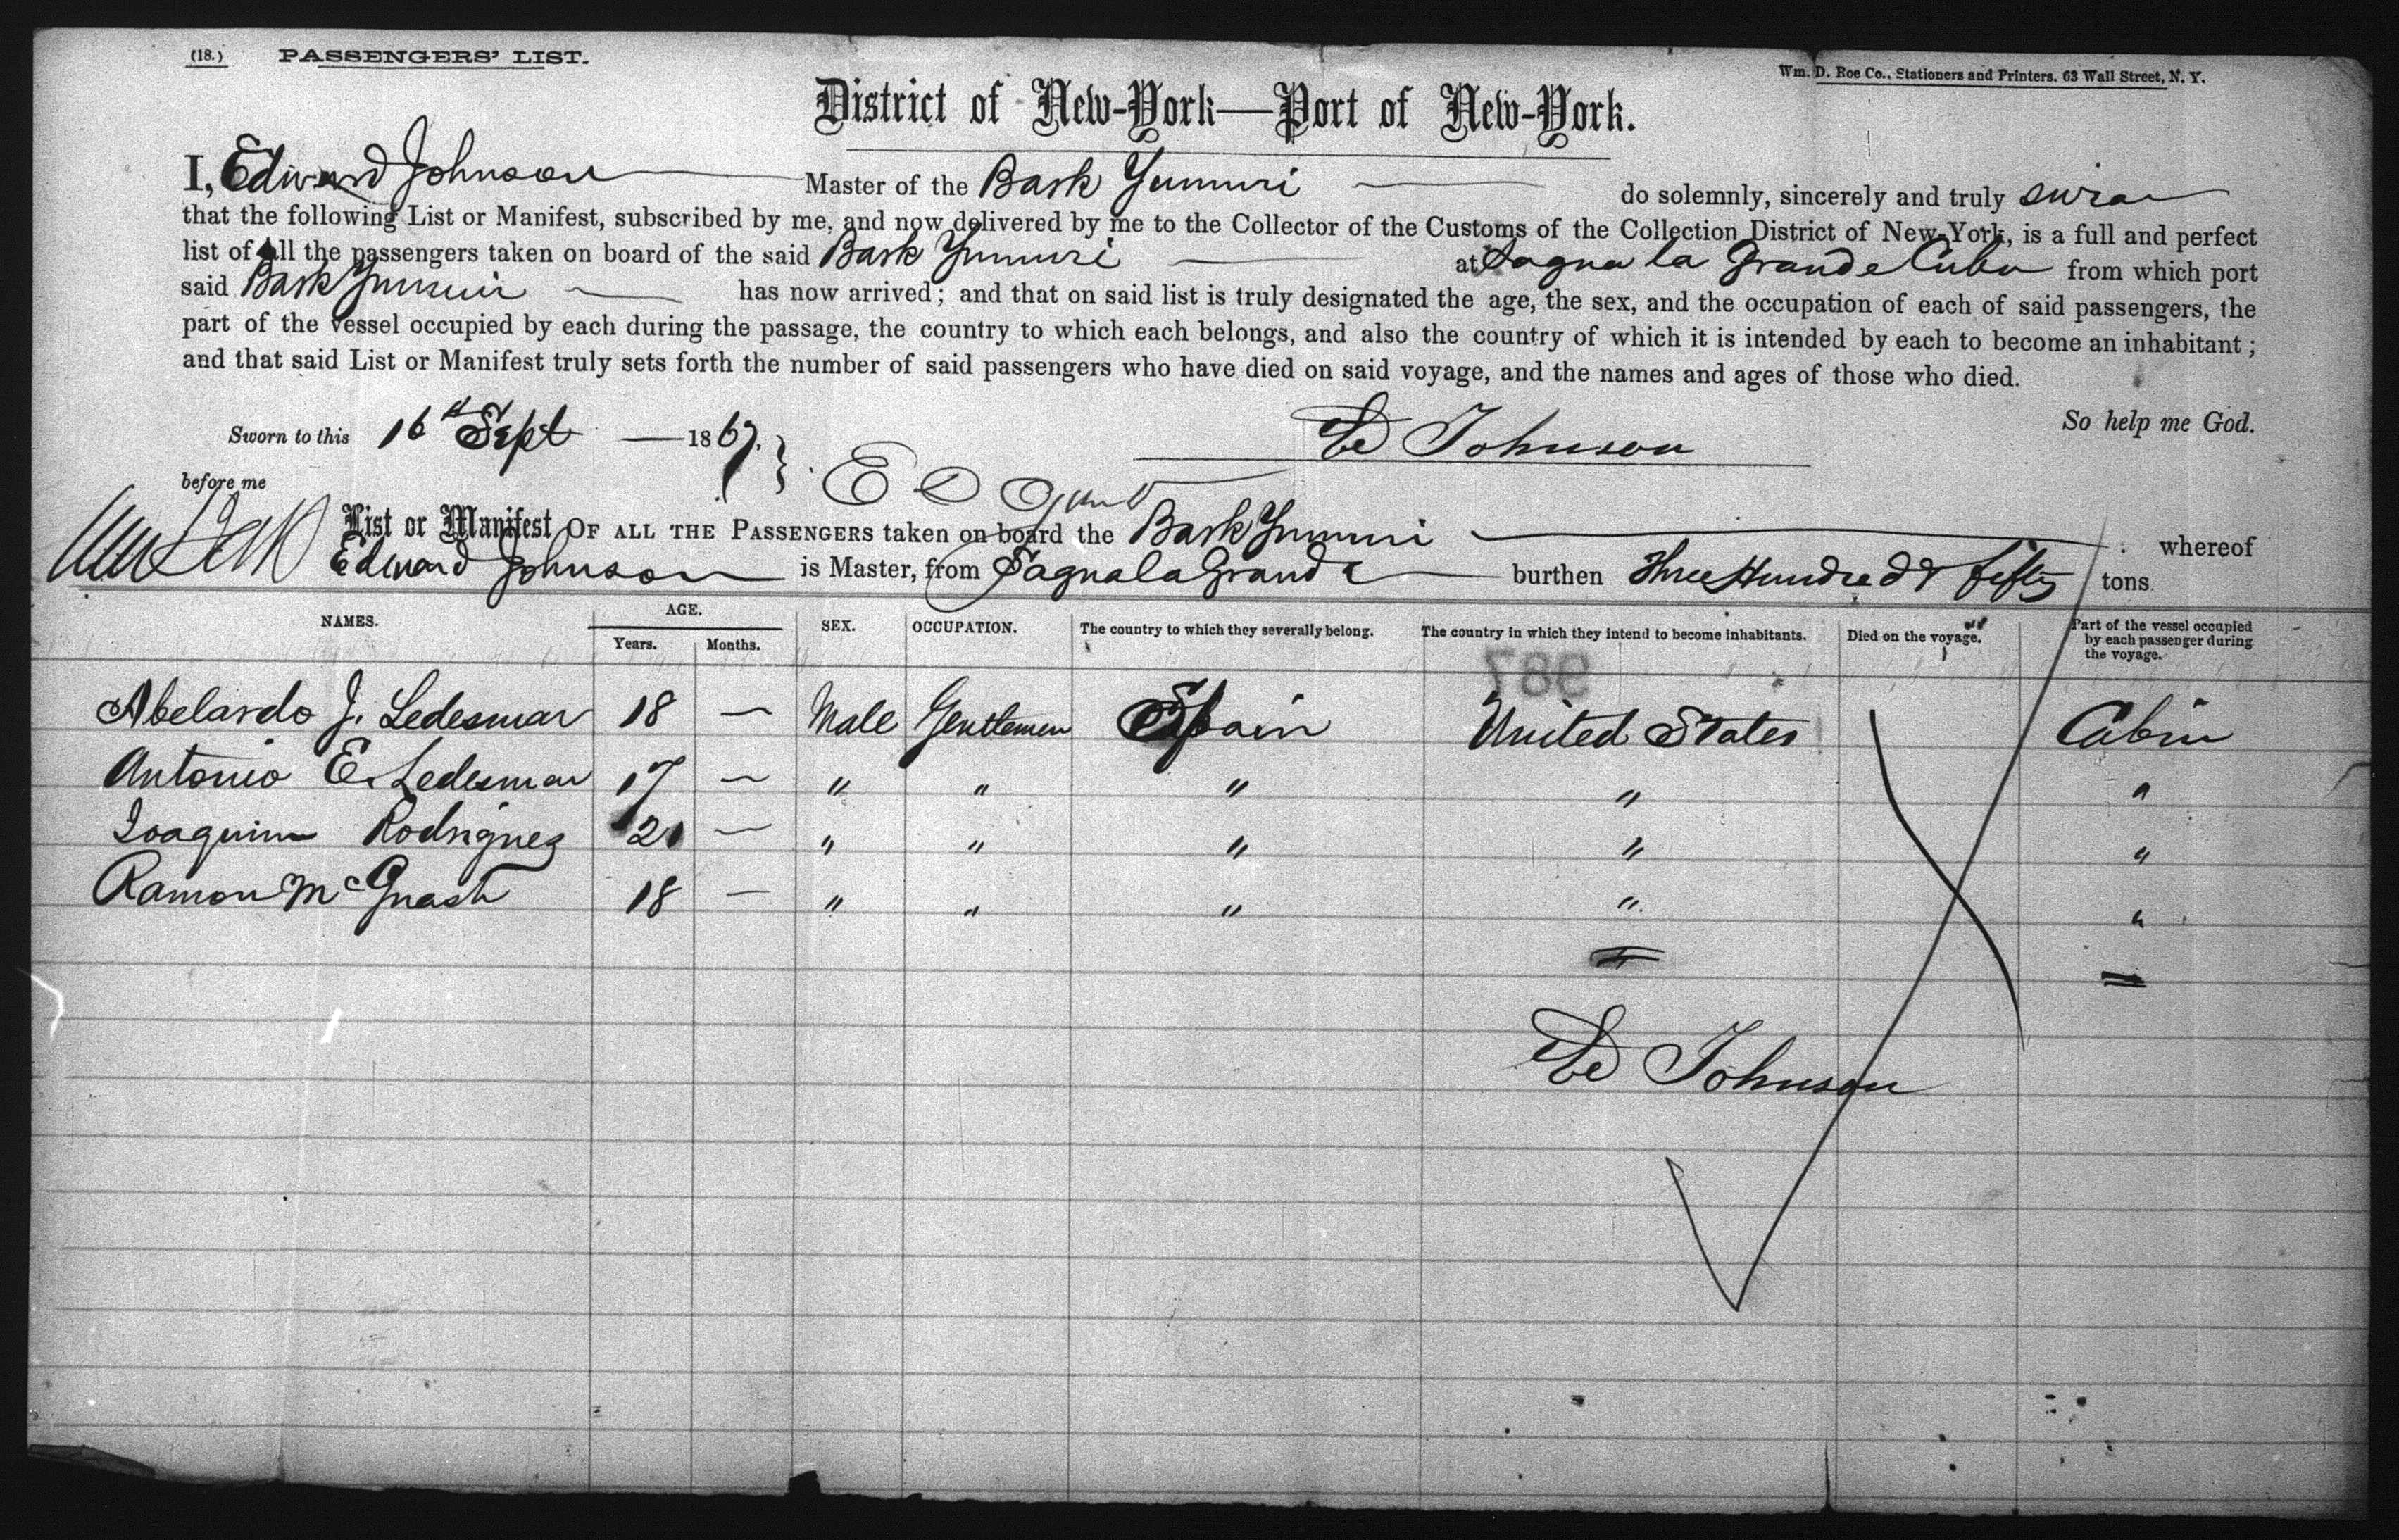 (18.) PASSENGERS' LIST.
Wm. D. Roe Co., Stationers and Printers, 63 Wall Street, N. Y.
District of New-York—Port of New-York.
I, Edward Johnson Master of the Bark Yumuri do solemnly, sincerely and truly
that the following List or Manifest, subscribed by me, and now delivered by me to the Collector of the Customs of the Collection District of New-York, is a full and perfect
list of all the passengers taken on board of the said Bark Yumuri at Sagua la Grande Cuba from which port
said Bark Yumuri has now arrived; and that on said list is truly designated the age, the sex, and the occupation of each of said passengers, the
part of the vessel occupied by each during the passage, the country to which each belongs, and also the country of which it is intended by each to become an inhabitant;
and that said List or Manifest truly sets forth the number of said passengers who have died on said voyage, and the names and ages of those who died.
So help me God.
Sworn to this 16th Sept 1867. Ed Johnson
before me
List or Manifest OF ALL THE PASSENGERS taken on board the Bark Yumuri whereof
Edward Johnson is Master, from Sagua la Grande burthen Three Hundred & fifty tons
NAMES. AGE. Years. Months. SEX. OCCUPATION. The country to which they severally belong. The country in which they intend to become inhabitants. Died on the voyage. Part of the vessel occupied by each passenger during the voyage.
987
Abelardo J. Ledesmar 18 — Male Gentlemen Spain United States Cabin
Antonio E. Ledesmar 17 — " " " " "
Joaquim Rodriguez 20 — " " " " "
Ramon Mc 18 — " " " " "
Ed Johnson